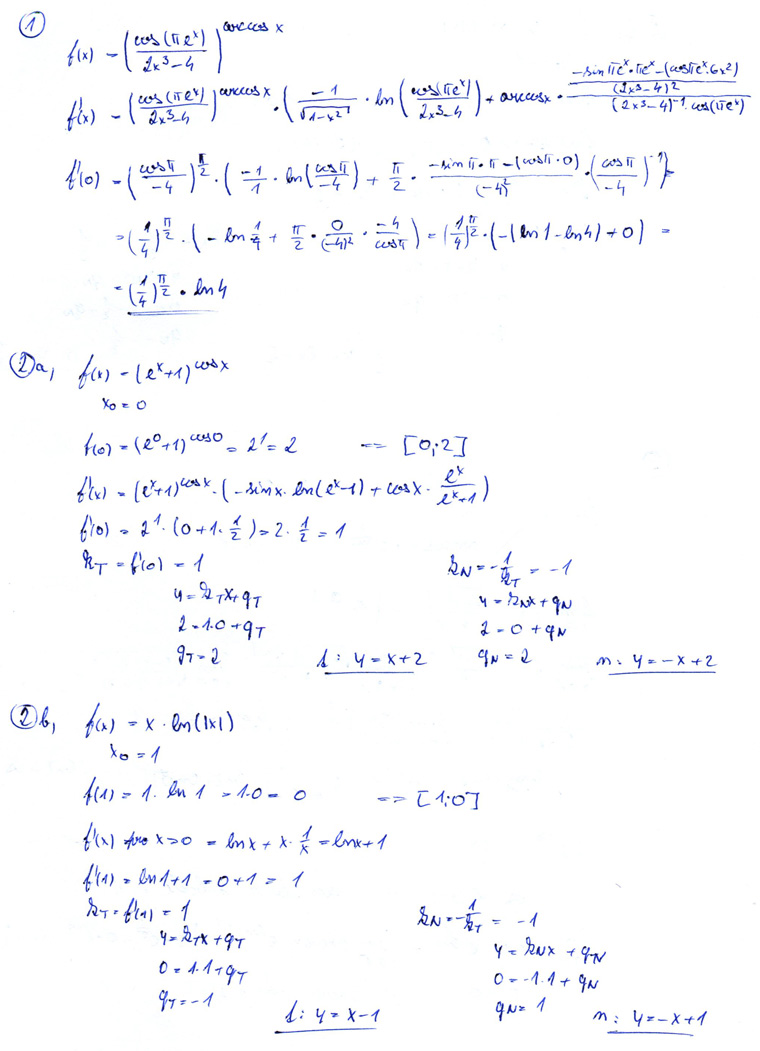 ①
f(x) = (cos(πe^x) / (2x³-4))^arccos x
f'(x) = (cos(πe^x) / (2x³-4))^arccos x · (-1/√(1-x²) · ln(cos(πe^x) / (2x³-4)) + arccos x · ((-sin πe^x · πe^x - (cos πe^x · 6x²)) / (2x³-4)²) / ((2x³-4)^-1 · cos(πe^x))
f'(0) = (cos π / -4)^(π/2) · (-1/1 · ln(cos π / -4) + π/2 · (-sin π · π - (cos π · 0)) / (-4)² · (cos π / -4)^-1) =
= (1/4)^(π/2) · (-ln 1/4 + π/2 · 0/(-4)² · -4/cos π) = (1/4)^(π/2) · (-(ln 1 - ln 4) + 0) =
= (1/4)^(π/2) · ln 4
② a,
f(x) = (e^x+1)^cos x
x₀ = 0
f(0) = (e^0+1)^cos 0 = 2^1 = 2 => [0;2]
f'(x) = (e^x+1)^cos x · (-sin x · ln(e^x-1) + cos x · e^x/(e^x+1))
f'(0) = 2^1 · (0+1·1/2) = 2 · 1/2 = 1
k_T = f'(0) = 1 k_N = -1/k_T = -1
y = k_T x + q_T y = k_N x + q_N
2 = 1·0 + q_T 2 = 0 + q_N
q_T = 2 t: y = x+2 q_N = 2 n: y = -x+2
② b,
f(x) = x · ln(|x|)
x₀ = 1
f(1) = 1 · ln 1 = 1·0 = 0 => [1;0]
f'(x) pro x>0 = ln x + x · 1/x = ln x + 1
f'(1) = ln 1 + 1 = 0+1 = 1
k_T = f'(1) = 1 k_N = -1/k_T = -1
y = k_T x + q_T y = k_N x + q_N
0 = 1·1 + q_T 0 = -1·1 + q_N
q_T = -1 t: y = x-1 q_N = 1 n: y = -x+1